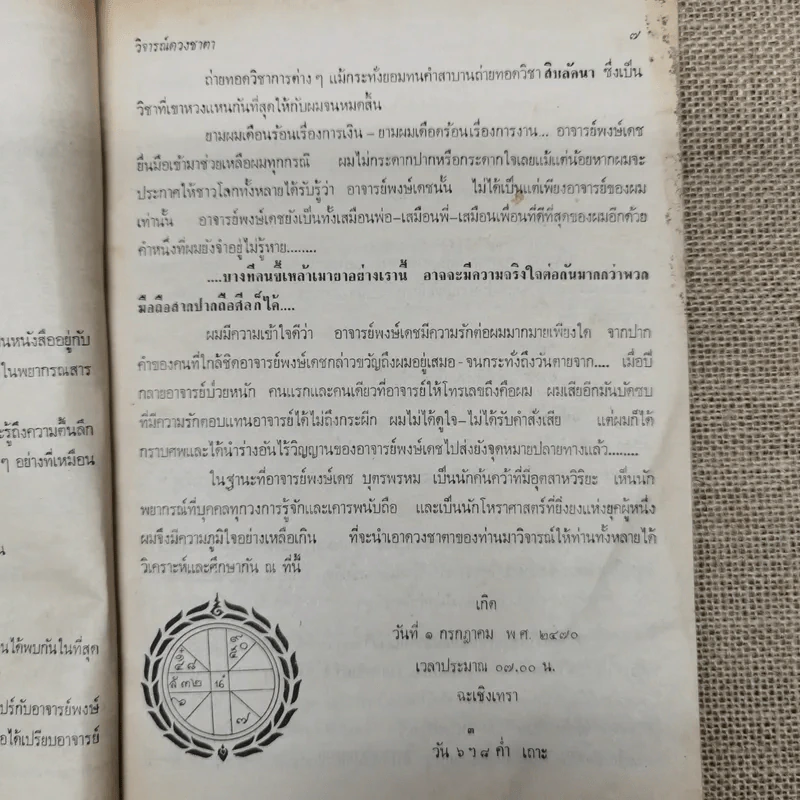 นหนังสืออยู่กับ
ในพยากรณสาร
ะรู้ถึงความตื้นลึก
ๆ อย่างที่เหมือน
น
นได้พบกันในที่สุด
ปร์กับอาจารย์พงษ์
อได้เปรียบอาจารย์
วิจารณ์ดวงชาตา ๗
ถ่ายทอดวิชาการต่าง ๆ แม้กระทั่งยอมทนคำสาบานถ่ายทอดวิชา สิบลัคนา ซึ่งเป็น
วิชาที่เขาหวงแหนกันที่สุดให้กับผมจนหมดสิ้น
ยามผมเดือนร้อนเรื่องการเงิน – ยามผมเดือดร้อนเรื่องการงาน... อาจารย์พงษ์เดช
ยื่นมือเข้ามาช่วยเหลือผมทุกกรณี ผมไม่กระดากปากหรือกระดากใจเลยแม้แต่น้อยหากผมจะ
ประกาศให้ชาวโลกทั้งหลายได้รับรู้ว่า อาจารย์พงษ์เดชนั้น ไม่ได้เป็นแต่เพียงอาจารย์ของผม
เท่านั้น อาจารย์พงษ์เดชยังเป็นทั้งเสมือนพ่อ–เสมือนพี่–เสมือนเพื่อนที่ดีที่สุดของผมอีกด้วย
คำหนึ่งที่ผมยังจำอยู่ไม่รู้หาย........
....บางทีคนขี้เหล้าเมายาอย่างเรานี้ อาจจะมีความจริงใจต่อกันมากกว่าพวก
มือถือสากปากถือศีลก็ได้....
ผมมีความเข้าใจดีว่า อาจารย์พงษ์เดชมีความรักต่อผมมากมายเพียงใด จากปาก
คำของคนที่ใกล้ชิดอาจารย์พงษ์เดชกล่าวขวัญถึงผมอยู่เสมอ - จนกระทั่งถึงวันตายจาก.... เมื่อบี่
กลายอาจารย์ป่วยหนัก คนแรกและคนเดียวที่อาจารย์ให้โทรเลขถึงคือผม ผมเสียอีกมันบัดซบ
ที่มีความรักตอบแทนอาจารย์ได้ไม่ถึงกระผีก ผมไม่ได้ดูใจ–ไม่ได้รับคำสั่งเสีย แต่ผมก็ได้
กราบศพและได้นำร่างอันไร้วิญญานของอาจารย์พงษ์เดชไปส่งยังจุดหมายปลายทางแล้ว........
ในฐานะที่อาจารย์พงษ์เดช บุตรพรหม เป็นนักค้นคว้าที่มีอุตสาหวิริยะ เห็นนัก
พยากรณ์ที่บุคคลทุกวงการรู้จักและเคารพนับถือ และเป็นนักโหราศาสตร์ที่ยิ่งยงแห่งยุคผู้หนึ่ง
ผมจึงมีความภูมิใจอย่างเหลือเกิน ที่จะนำเอาดวงชาตาของท่านมาวิจารณ์ให้ท่านทั้งหลายได้
วิเคราะห์และศึกษากัน ณ ที่นี้
เกิด
วันที่ ๑ กรกฎาคม พ ศ. ๒๔๗๐
เวลาประมาณ ๐๗.๐๐ น.
ฉะเชิงเทรา
๓
วัน ๖ ฯ ๘ ค่ำ เถาะ
ลั ๓๒ น์
๗